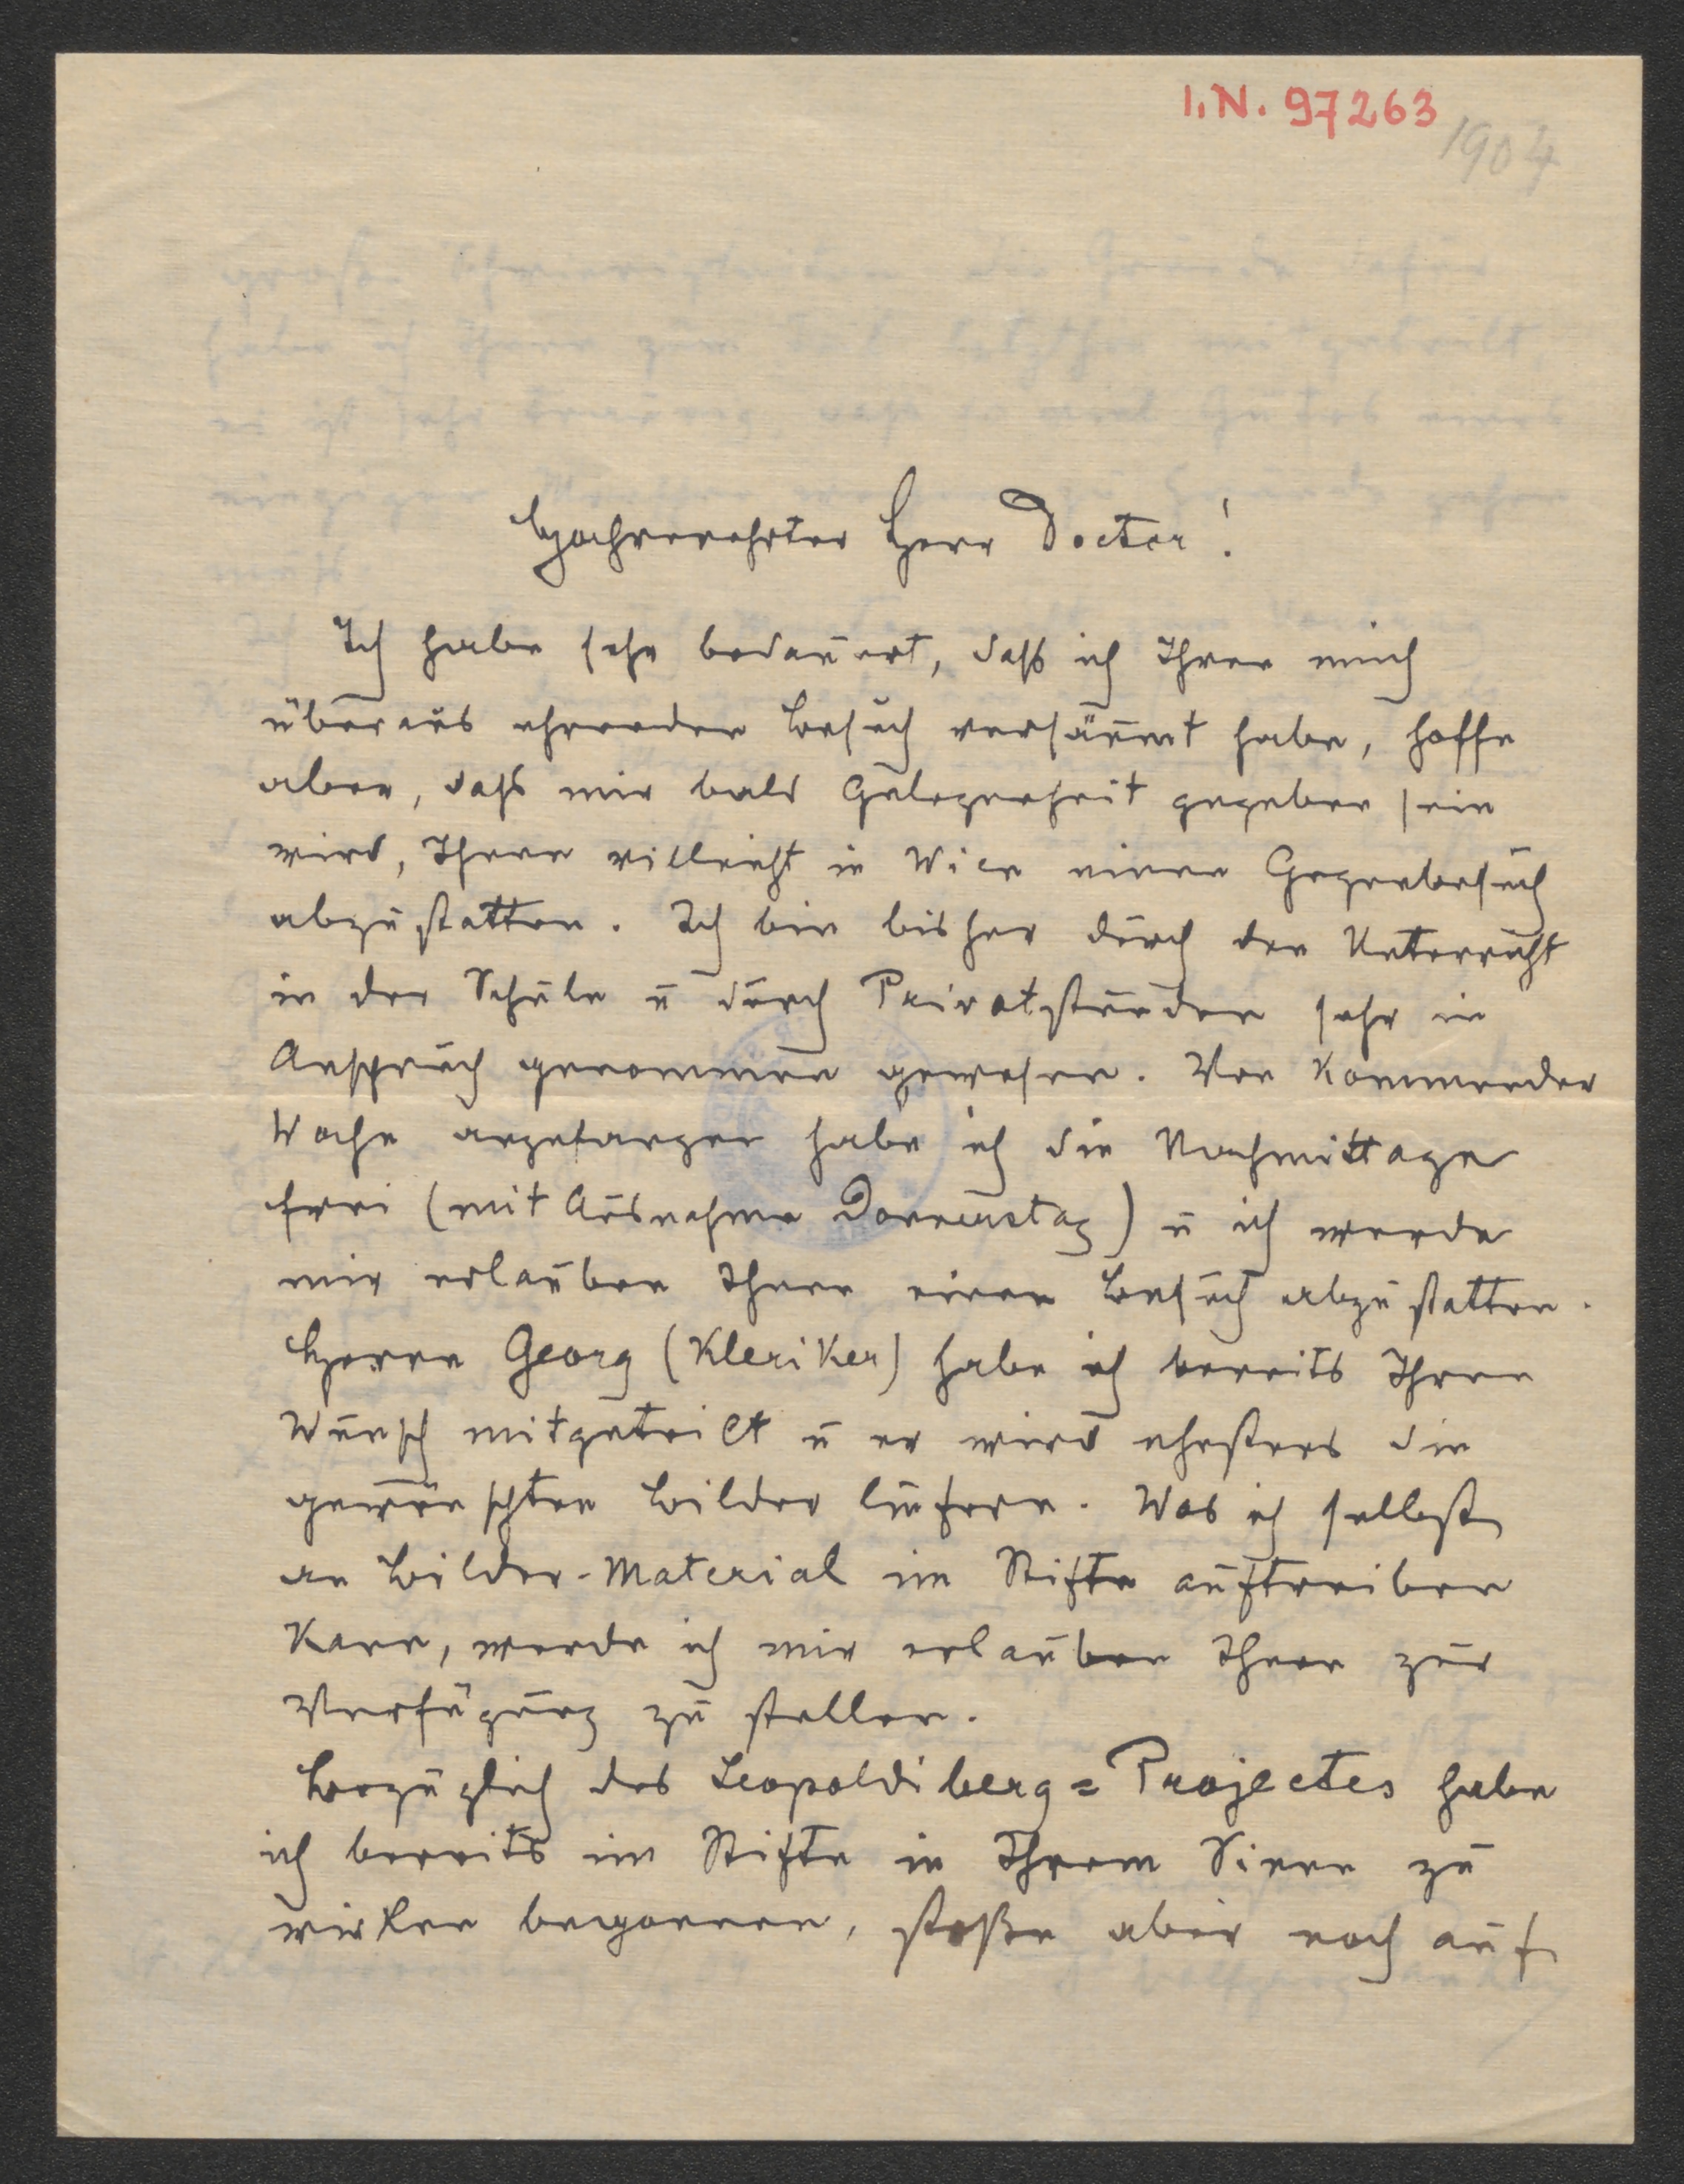 I.N. 97263
1904
Hochverehrter Herr Doctor!
Ich habe sehr bedauert, dass ich Ihren mich
überaus ehrenden Besuch versäumt habe, hoffe
aber, dass mir bald Gelegenheit gegeben sein
wird, Ihnen villeicht in Wien einen Gegenbesuch
abzustatten. Ich bin bisher durch den Unterricht
in der Schule u durch Privatstunden sehr in
Anspruch genommen gewesen. Von Kommender
Woche angefangen habe ich die Nachmittage
frei (mit Ausnahme Donnerstag) u ich werde
mir erlauben Ihnen einen Besuch abzustatten.
Herrn Georg (Kleriker) habe ich bereits Ihren
Wunsch mitgeteilt u er wird ehestens die
gewünschten Bilder liefern. Was ich sellbst
an Bilder-Material im Stifte auftreiben
Kann, werde ich mir erlauben Ihnen zur
Verfügung zu stellen.
Bezüglich des Leopoldiberg=Projectes habe
ich bereits im Stifte in Ihrem Sinne zu
wirken begonnen, stoße aber noch auf